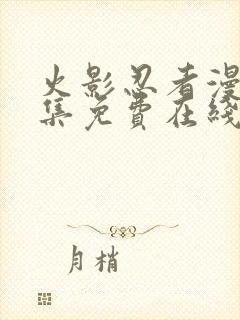 火影忍者漫
集免費在綫
月梢